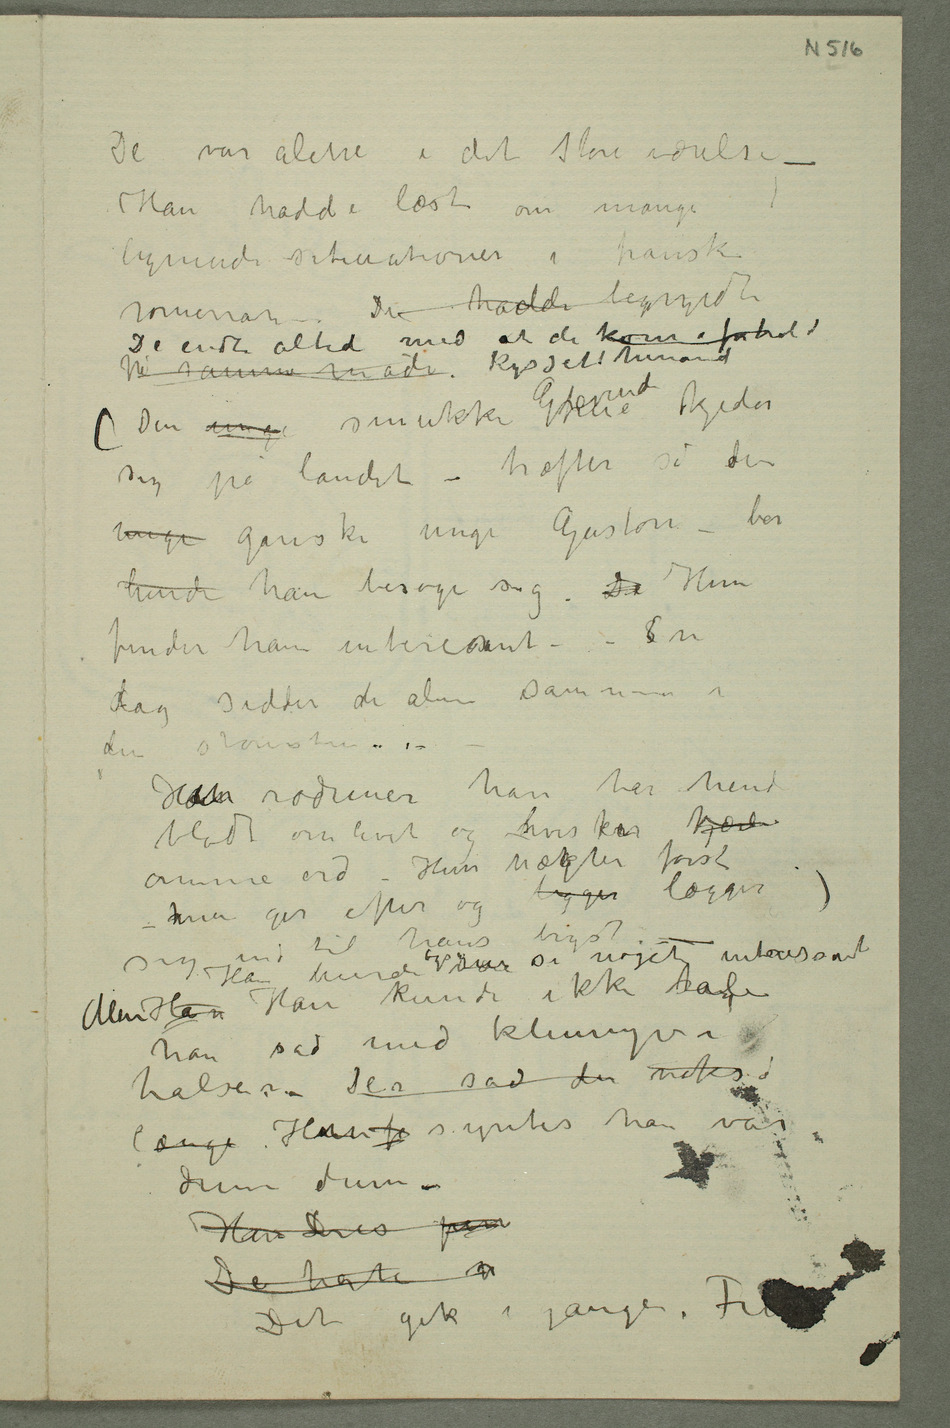 N 516
De var alene i det store værelse —
Han hadde læst om mange
lignende situationer i franske
romerran – De hadde begyndt
De endte altid med at de kom i forhold
på samme måde. kysset hinand
( Den unge smukke Grevinde kjeder
sig på landet – træffer så den
unge ganske unge Gaston – ber
hende han besøge sig. De Hun
finder ham interesant – – En
dag sidder de alene sammen i
den
Han rødmer han tar hend
blødt om livet og hvisker kjæ
ømme ord – Hun nægter først
– men ger efter og ligger lægger )
sig ind til hans bryst —
Han burde si noget interessant
Men Han Han kunde ikke tale
han sad med klump i
halsen – Der sad de nok så
længe. Han f syntes han var
dum dum –
Han
De hørte n
Det gik i gangen.